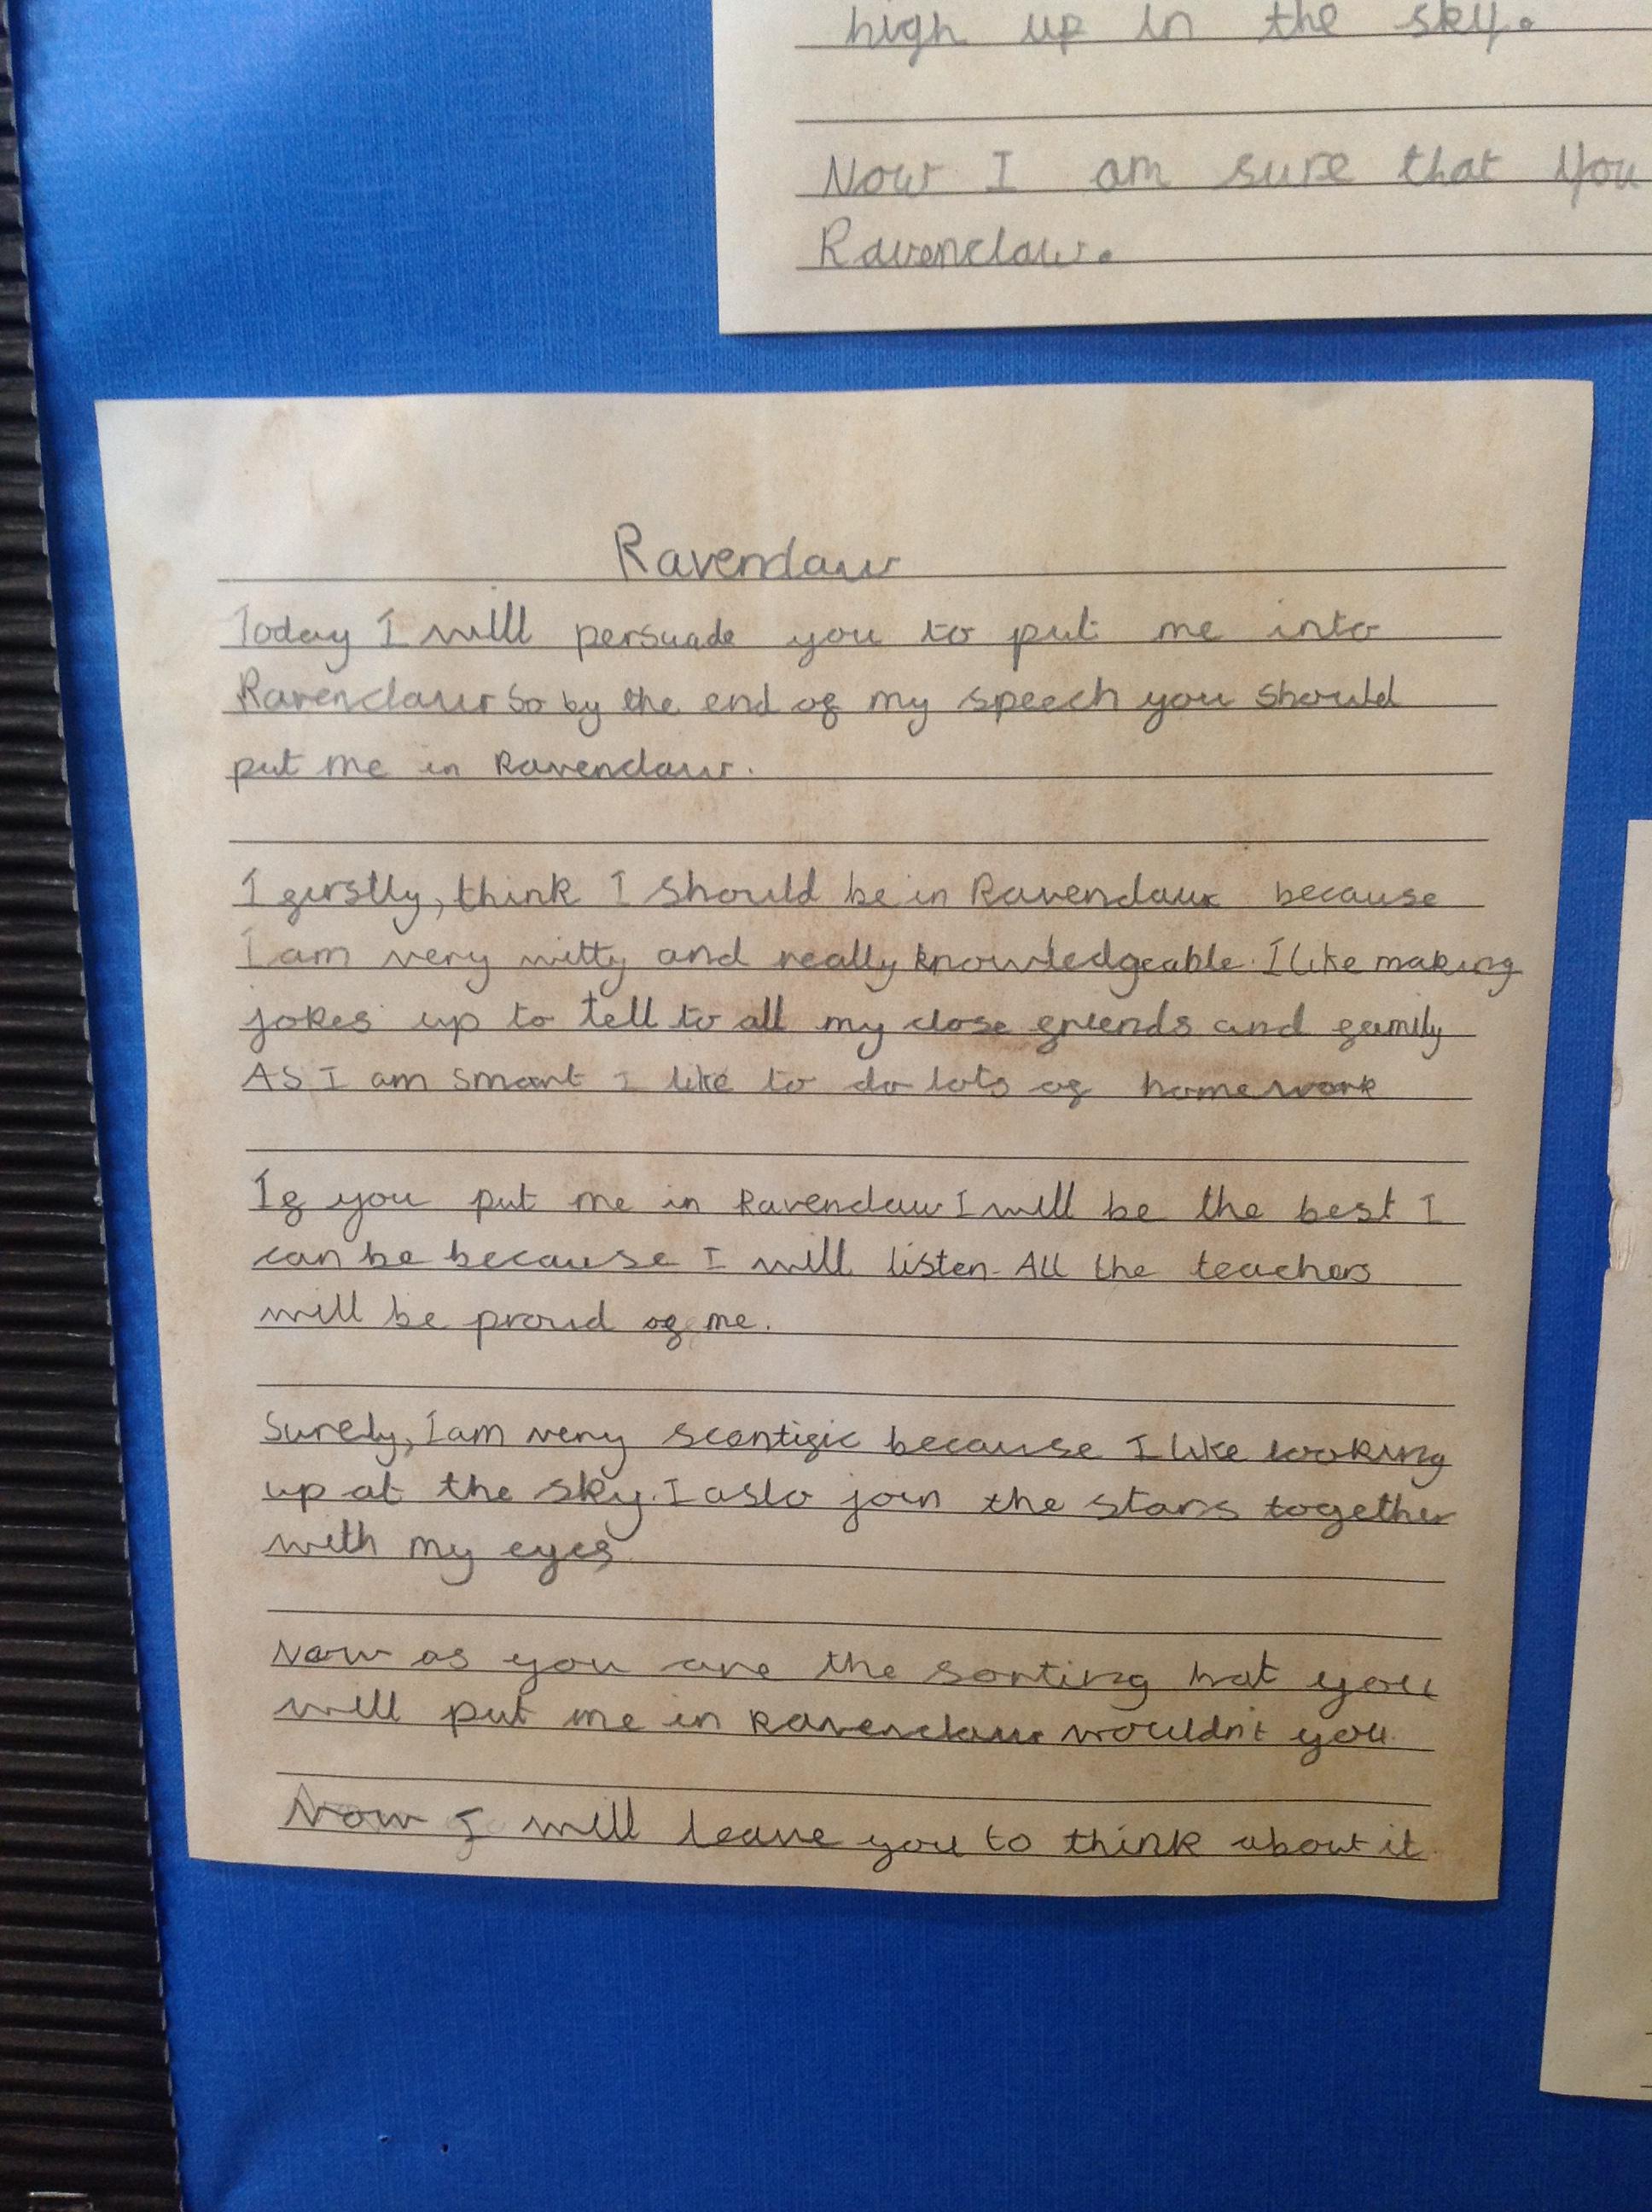 high up in the sky.
Now I am sure that you
Ravenclaw.
Ravenclaw
Today I will persuade you to put me into
Ravenclaw so by the end of my speech you should
put me in Ravenclaw.
I firstly, think I should be in Ravenclaw because
I am very witty and really knowledgeable. I like making
jokes up to tell to all my close friends and family
As I am smart I like to do lots of homework
If you put me in Ravenclaw I will be the best I
can be because I will listen. All the teachers
will be proud of me.
Surely, I am very scentific because I like looking
up at the sky. I aslo join the stars together
with my eyes
Now as you are the sorting hat you
will put me in Ravenclaw wouldn't you.
Now I will leave you to think about it.